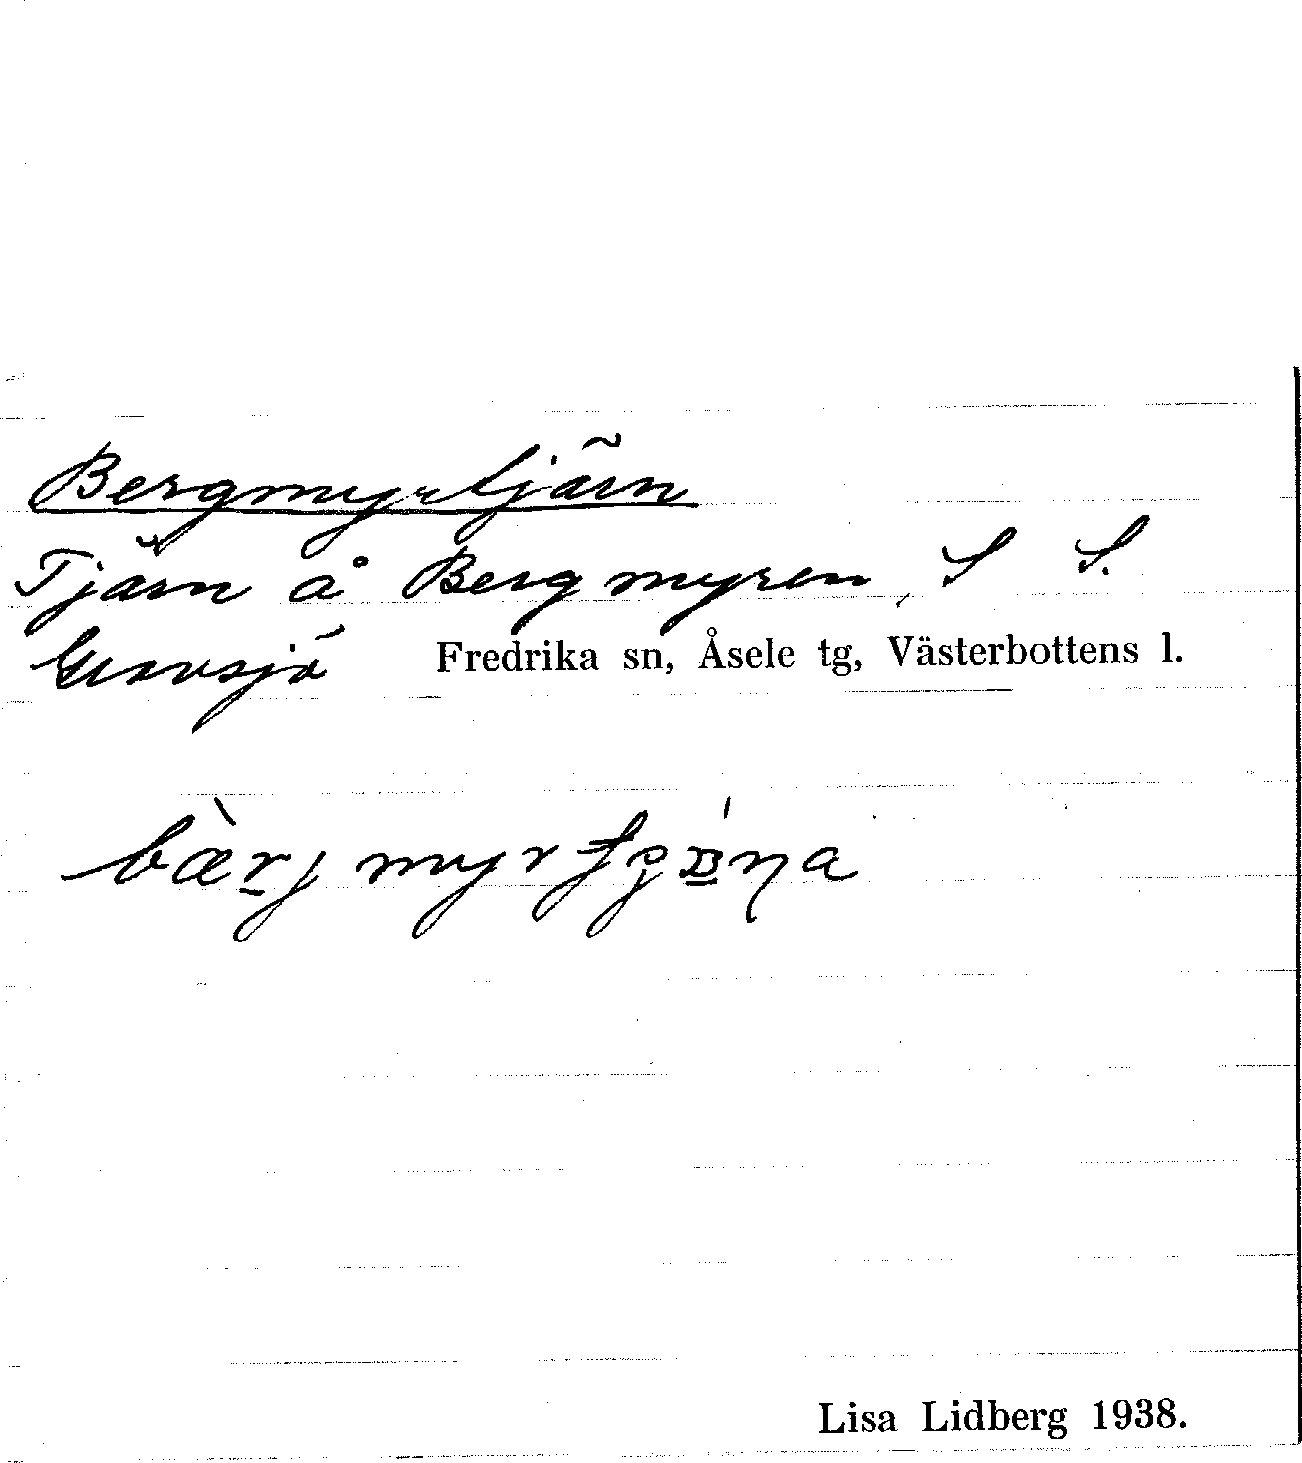 Bergmyrtjärn
Tjärn å Bergmyren, S S.
Gravsjö Fredrika sn, Åsele tg, Västerbottens l.
Lisa Lidberg 1938.